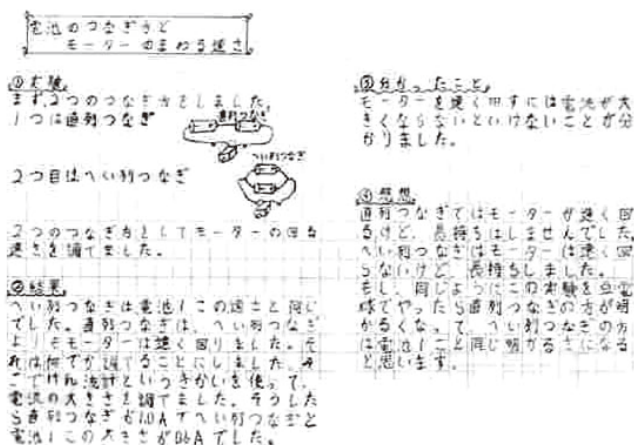 電池のつなぎ方と
モーターのまわる速さ
①実験
まず、2つのつなぎ方をしました。
1つは直列つなぎ
直列つなぎ
へい列つなぎ
2つ目はへい列つなぎ
2つのつなぎ方をしてモーターの回る
速さを調てました。
②結果
へい列つなぎは電池1この速さと同じ
でした。直列つなぎは、へい列つなぎ
よりもモーターは速く回りました。そ
れは何でか調てることにしました。そ
こでけん流計というきかいを使って、
電流の大きさを調てました。そうした
ら直列つなぎが1.0Aでへい列つなぎと
電池1この大きさが0.6Aでした。
③分かったこと
モーターを速く回すには電流が大
きくならないといけないことが分
かりました。
④感想
直列つなぎではモーターが速く回
るけど、長持ちはしませんでした。
へい列つなぎはモーターは速く回
らないけど、長持ちしました。
もし、同じようにこの実験を豆電
球でやったら直列つなぎの方が明
かるくなって、へい列つなぎの方
は電池1こと同じ明かるさになる
と思います。